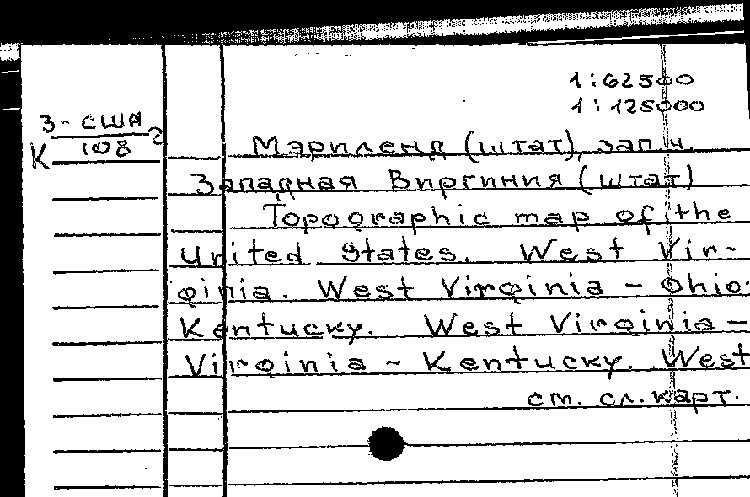 1:62500
1:125000
3-США
К 108
Мэриленд (штат), зап. ч.
Западная Виргиния (штат)
Topographic map of the
United States. West Vir-
ginia. West Virginia - Ohio-
Kentucky. West Virginia -
Virginia - Kentucky. West
см. сл. карт.